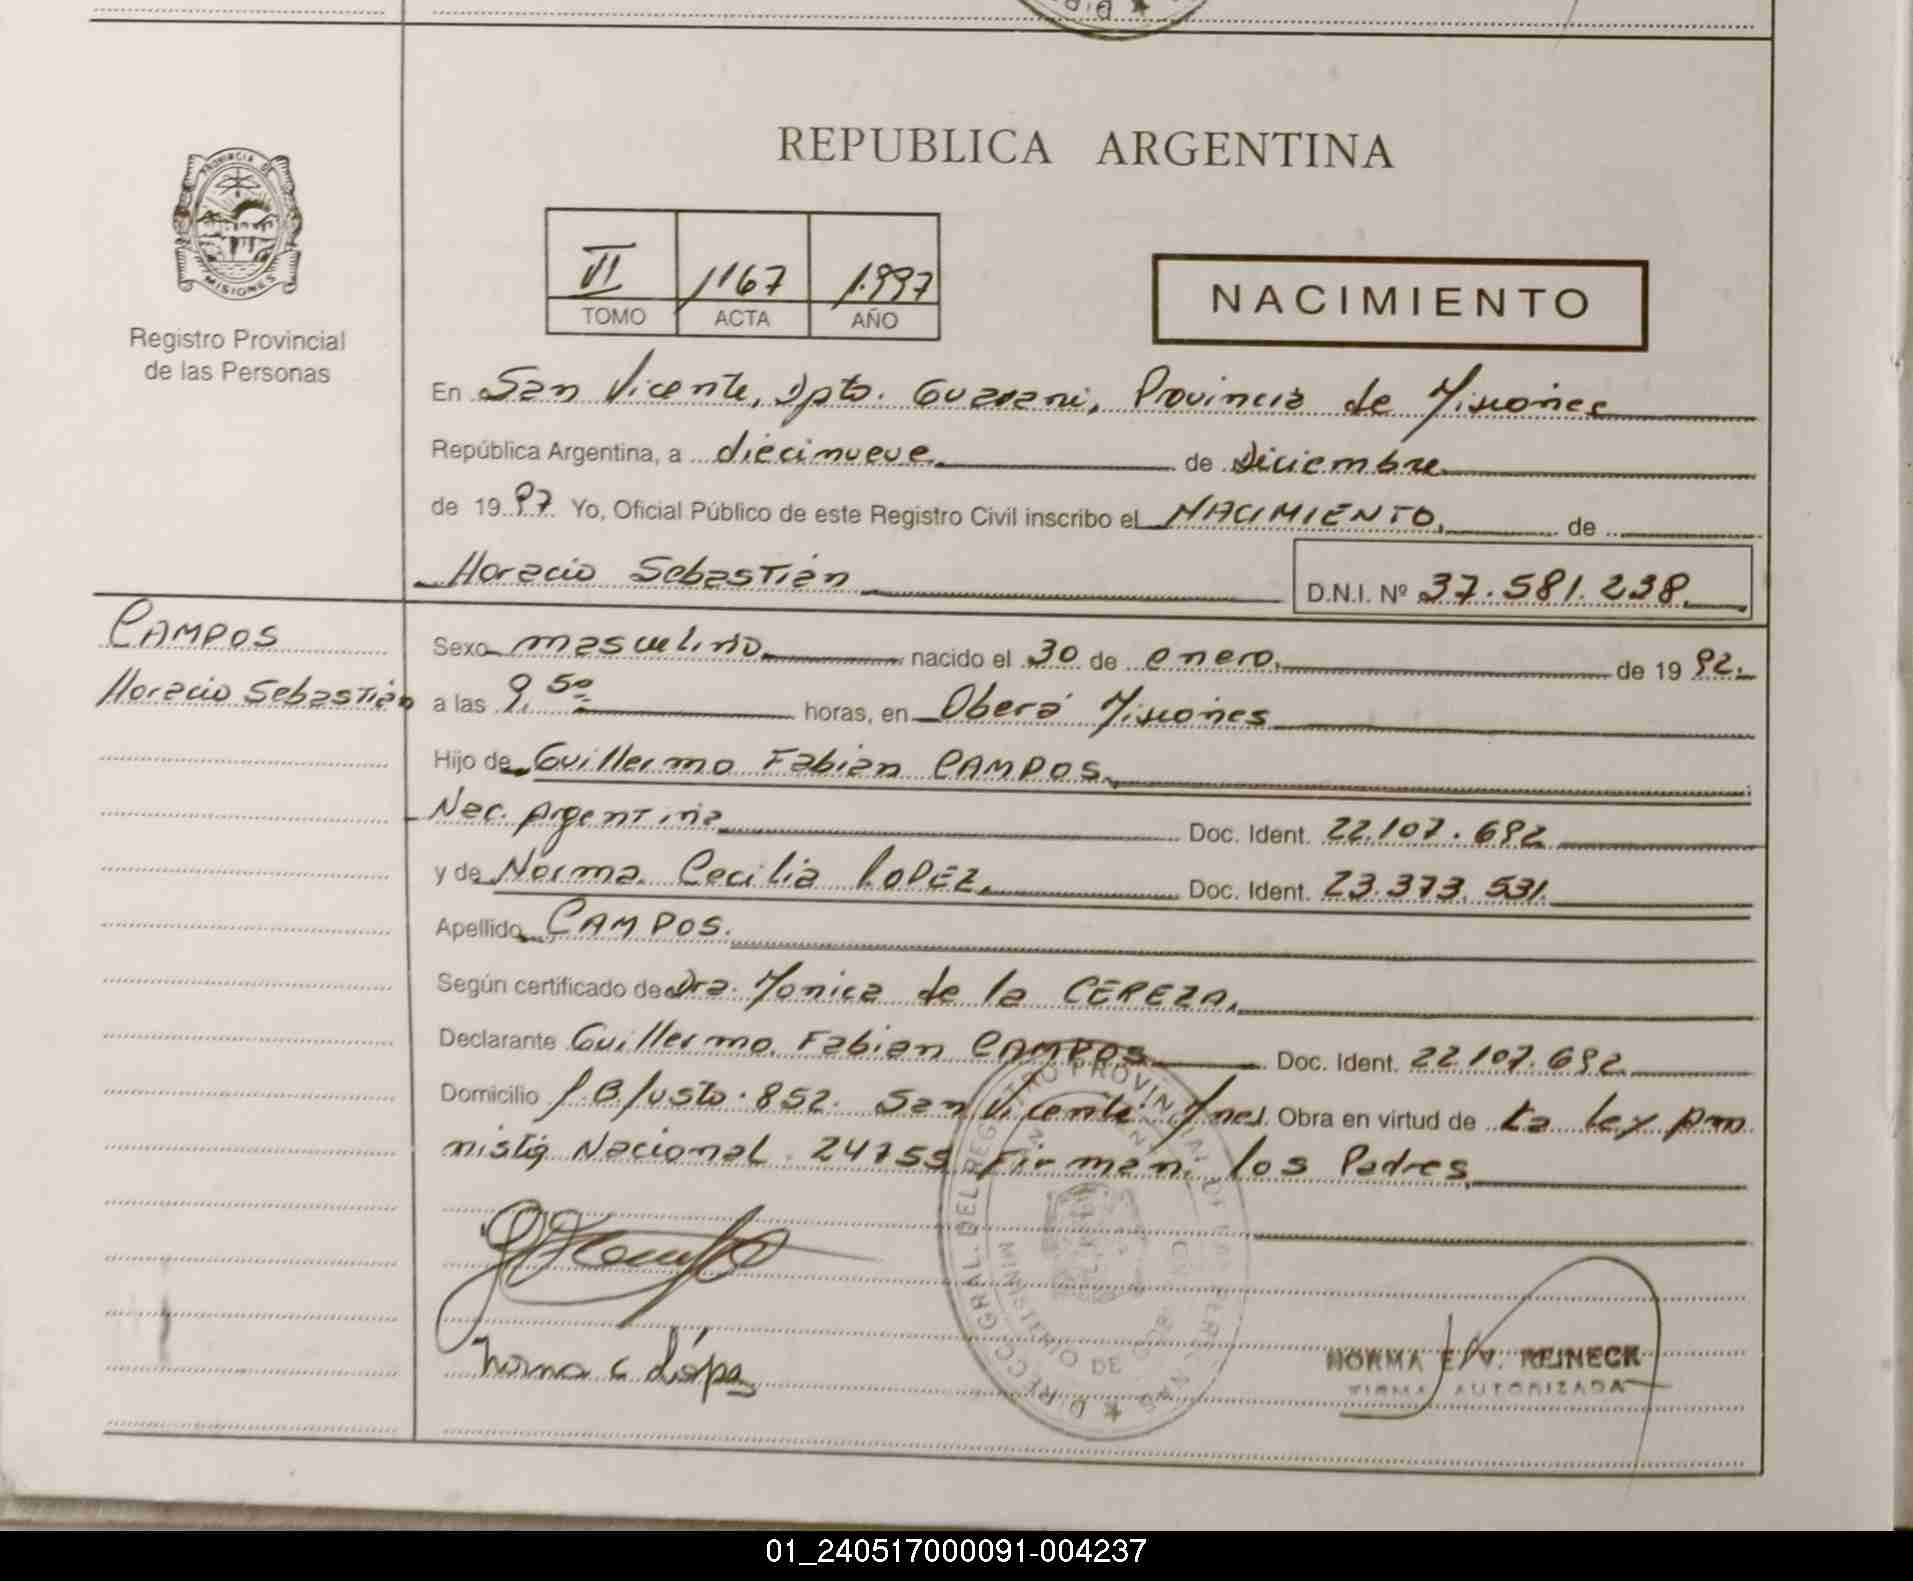 REPUBLICA ARGENTINA
PROVINCIA DE MISIONES
Registro Provincial
de las Personas
VI 1167 1.997
TOMO ACTA AÑO
NACIMIENTO
En San Vicente, Dpto. Guarani, Provincia de Misiones
República Argentina, a diecinueve de Diciembre
de 19 97 Yo, Oficial Público de este Registro Civil inscribo el NACIMIENTO, de
Horacio Sebastián D.N.I. Nº 37.581.238
CAMPOS
Horacio Sebastián
Sexo masculino nacido el 30 de enero, de 19 92.
a las 9,50 horas, en Oberá Misiones
Hijo de Guillermo Fabian CAMPOS
Nac. Argentina Doc. Ident. 22.107.692
y de Norma Cecilia LOPEZ, Doc. Ident. 23.373.531.
Apellido CAMPOS.
Según certificado de Dra. Monica de la CEREZA,
Declarante Guillermo Fabian CAMPOS Doc. Ident. 22.107.692
Domicilio J.B Justo. 852. San Vicente Mnes. Obra en virtud de La ley Am
nistia Nacional 24755 Firman los Padres
Norma C López
NORMA E. V. REINECK
FIRMA AUTORIZADA
01_240517000091-004237